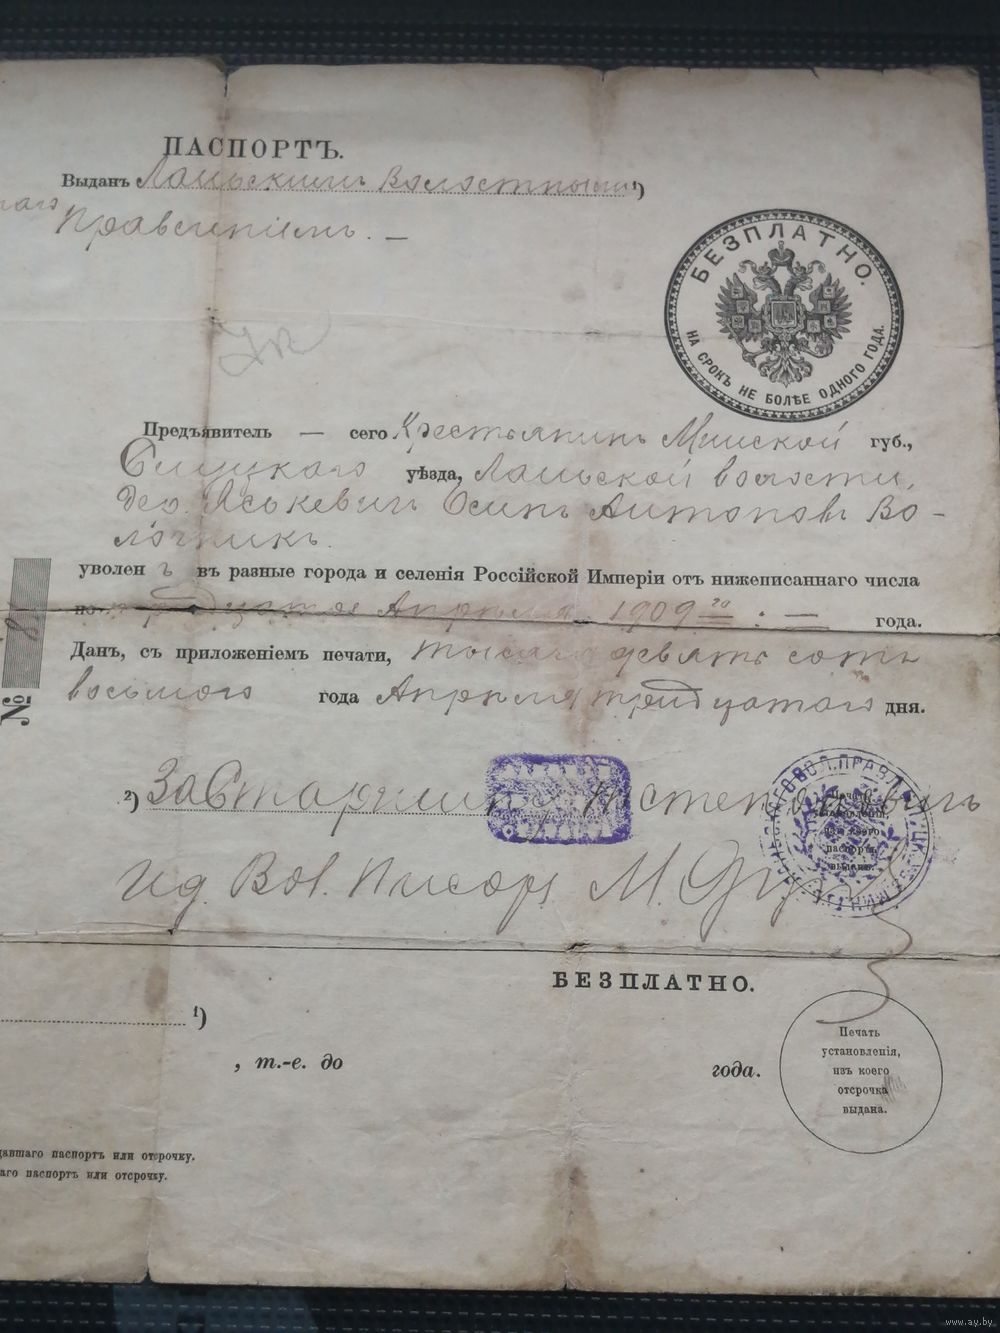 ПАСПОРТЪ.
Выданъ Ланьскимъ Волостнымъ ¹)
Правленіемъ. —
БЕЗПЛАТНО.
НА СРОКЪ НЕ БОЛѢЕ ОДНОГО ГОДА.
Предъявитель — сего Крестьянинъ Минской губ.,
Слуцкаго уѣзда, Ланьской волости,
дер. Яськевичъ Осипъ Антоновъ Во-
лочникъ.
уволенъ въ разные города и селенія Россійской Имперіи отъ нижеписаннаго числа
по тридцатое Апрѣля 1909 го : — года.
№ 8
Данъ, съ приложеніемъ печати, тысяча девять сотъ
восьмого года Апрѣля тридцатого дня.
²) За Старшину
Печать
установленія,
изъ коего
паспортъ
выданъ.
ид. Вол. Писаря М.
БЕЗПЛАТНО.
¹)
, т.-е. до года.
Печать
установленія,
изъ коего
отсрочка
выдана.
давшаго паспортъ или отсрочку.
аго паспортъ или отсрочку.
www.ay.by